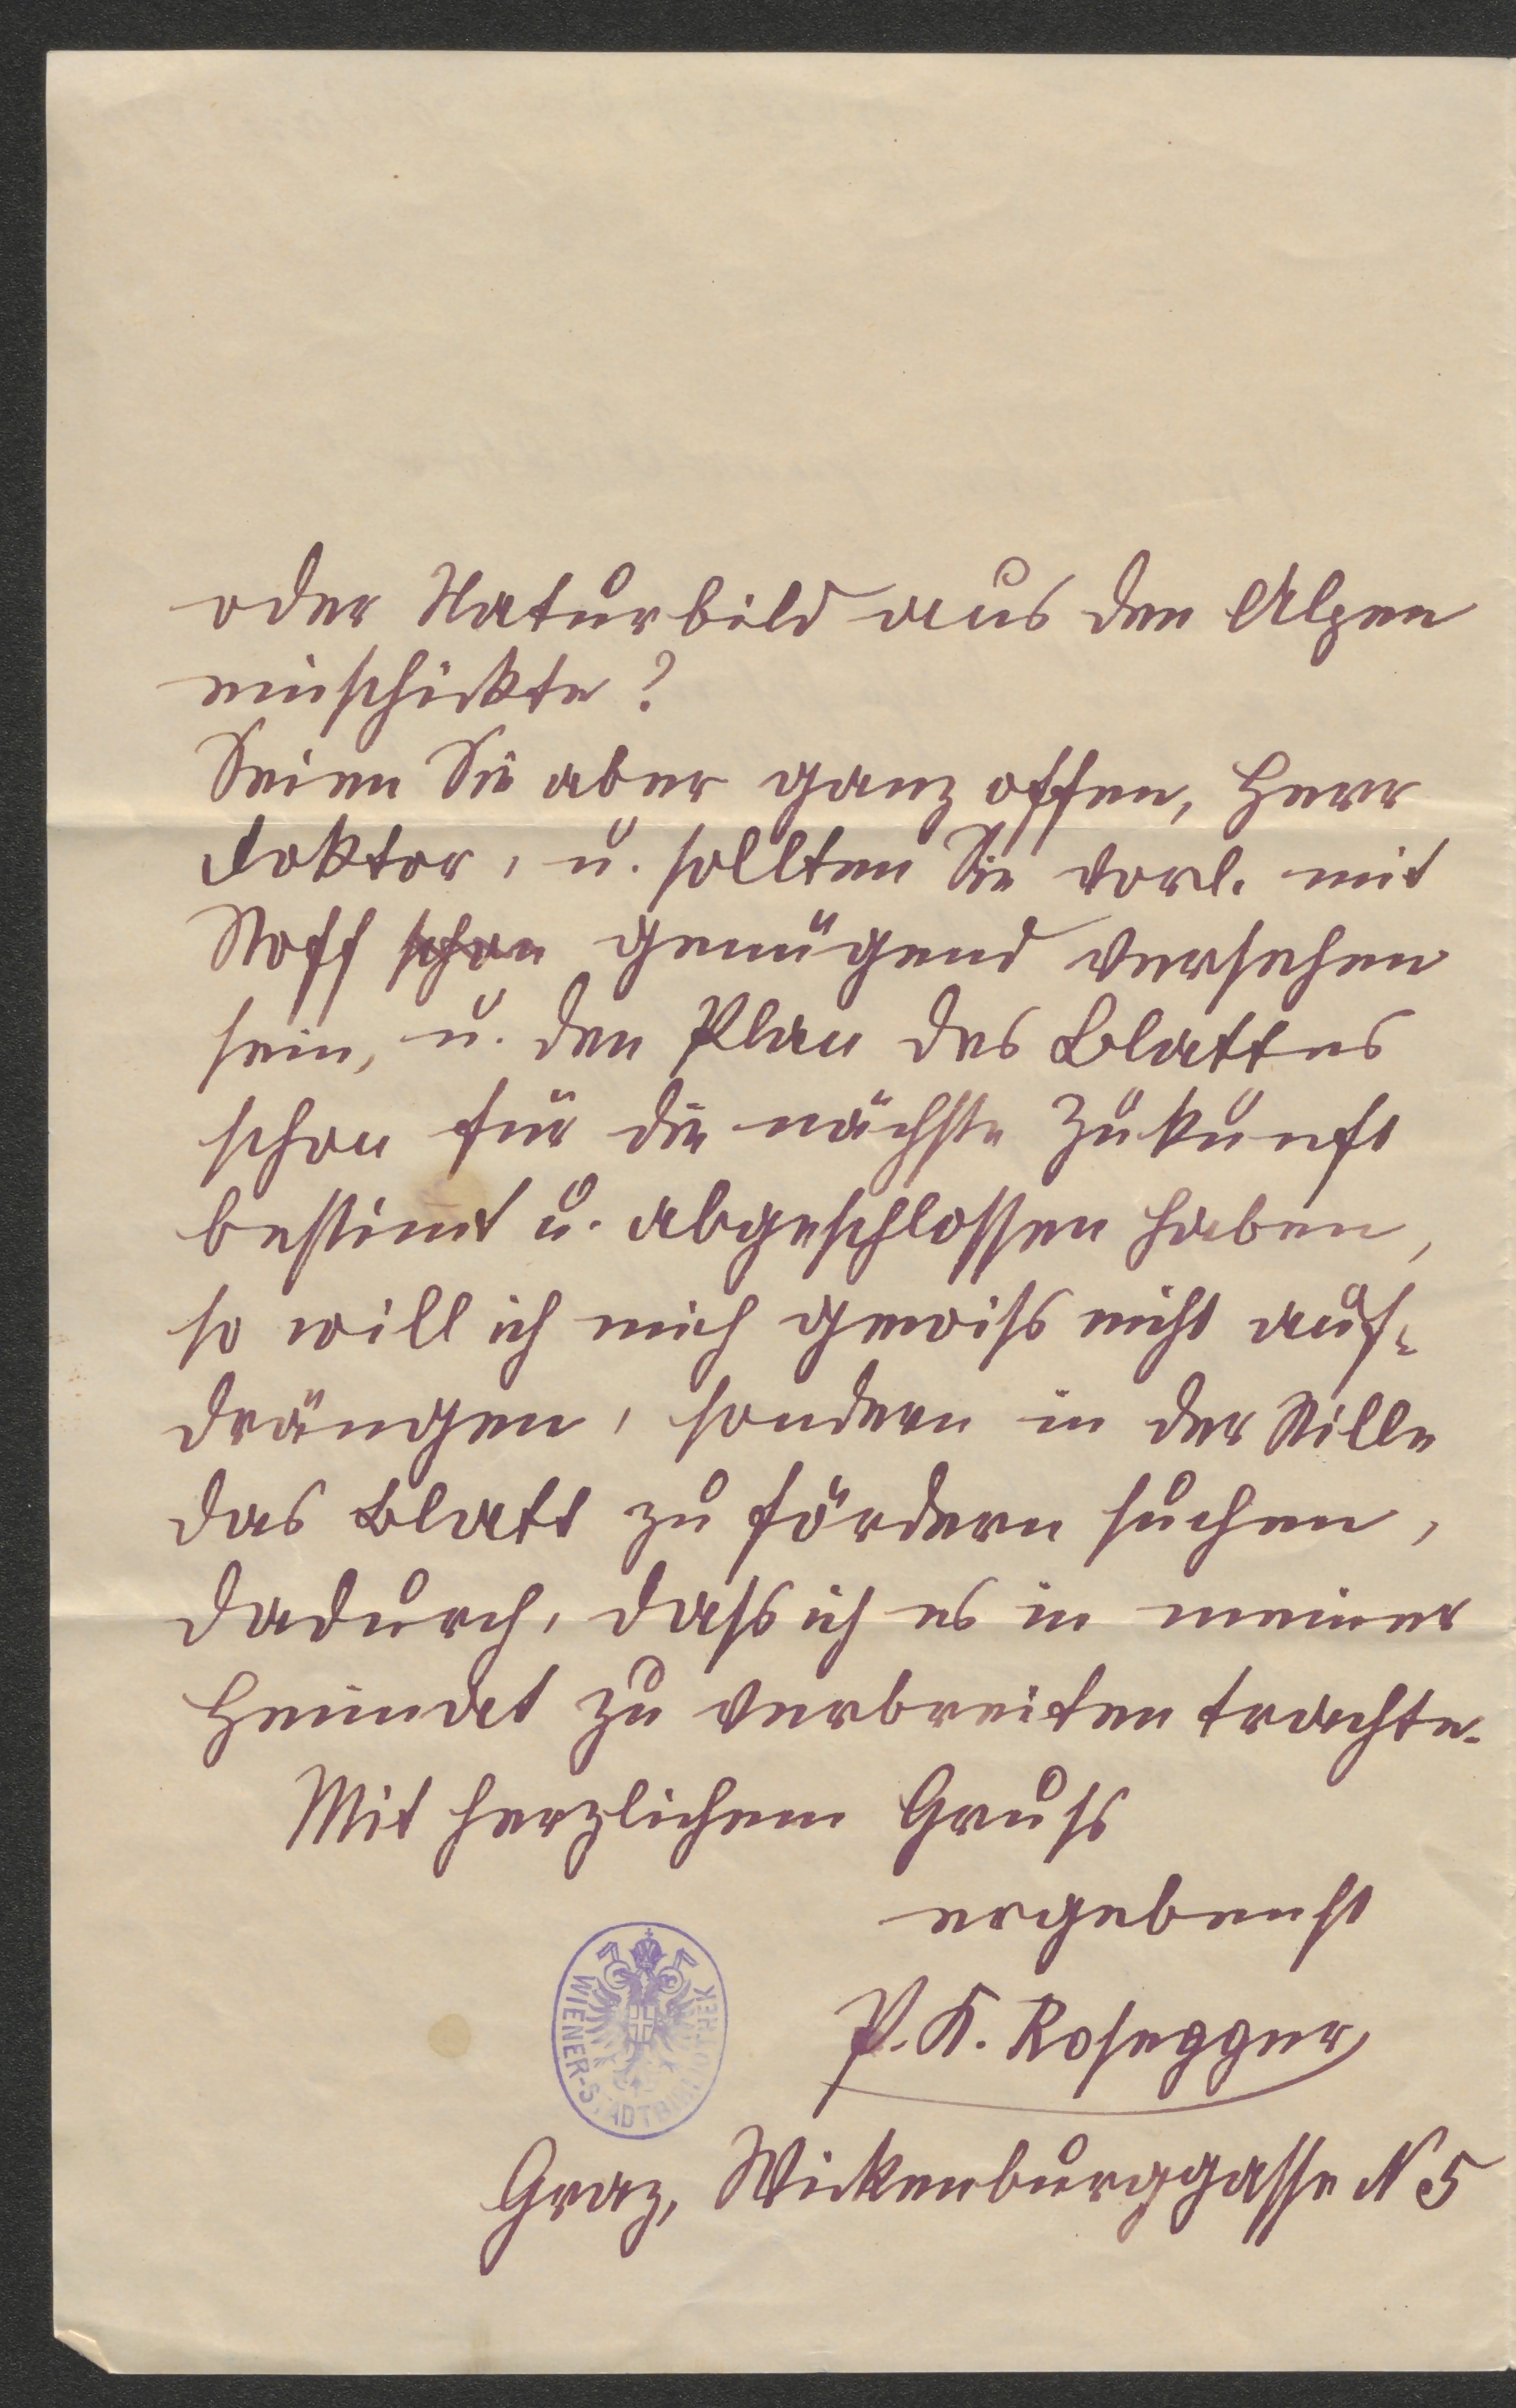 oder Naturbild aus den Alpen
einschickte?
Seien Sie aber ganz offen, Herr
Doktor, u. sollten Sie vorl. mit
Stoff schon genügend versehen
sein, u. den Plan des Blattes
schon für die nächste Zukunft
bestimt u. abgeschlossen haben,
so will ich mich gewiss nicht auf-
drängen, sondern in der Stille
das Blatt zu fördern suchen,
dadurch, dass ich es in meiner
Heimat zu verbreiten trachte.
Mit herzlichem Gruss
ergebenst
P. K. Rosegger
WIENER-STADTBIBLIOTHEK
Graz, Wickenburggasse N 5